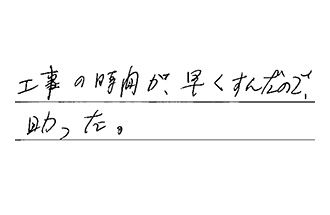 工事の時間が、早くすんだので、
助った。